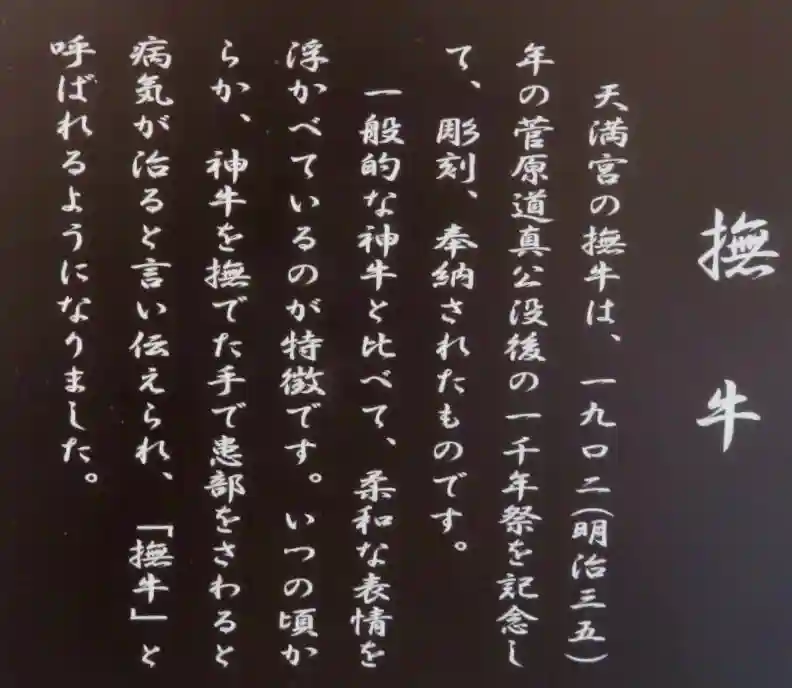 撫牛
天満宮の撫牛は、一九〇二(明治三五)
年の菅原道真公没後の一千年祭を記念し
て、彫刻、奉納されたものです。
一般的な神牛と比べて、柔和な表情を
浮かべているのが特徴です。いつの頃か
らか、神牛を撫でた手で患部をさわると
病気が治ると言い伝えられ、「撫牛」と
呼ばれるようになりました。